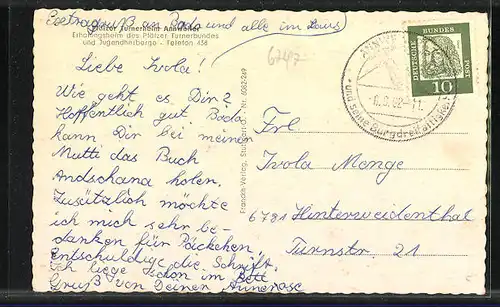 Extragruß an Bodo und alle im Haus
Pfälzer Turnerheim Annweiler
Erholungsheim des Pfälzer Turnerbundes
und Jugendherberge - Telefon 438
Liebe Isola!
Wie geht es Dir?
Hoffentlich gut. Bodo
kann Dir bei meiner
Mutti das Buch
Andschana holen.
Zusätzlich möchte
ich mich sehr be-
danken für Päckchen,
entschuldige die Schrift.
Ich liege schon im Bett
Gruß von Deiner Annerose
Franckh-Verlag, Stuttgart-O. - Nr. 6082-269
6747
DEUTSCHE
BUNDES
POST
10
62-11
und seine Burgdreifaltigkeit
Frl
Isola Menge
6781 Hinterweidenthal
Turnstr. 21